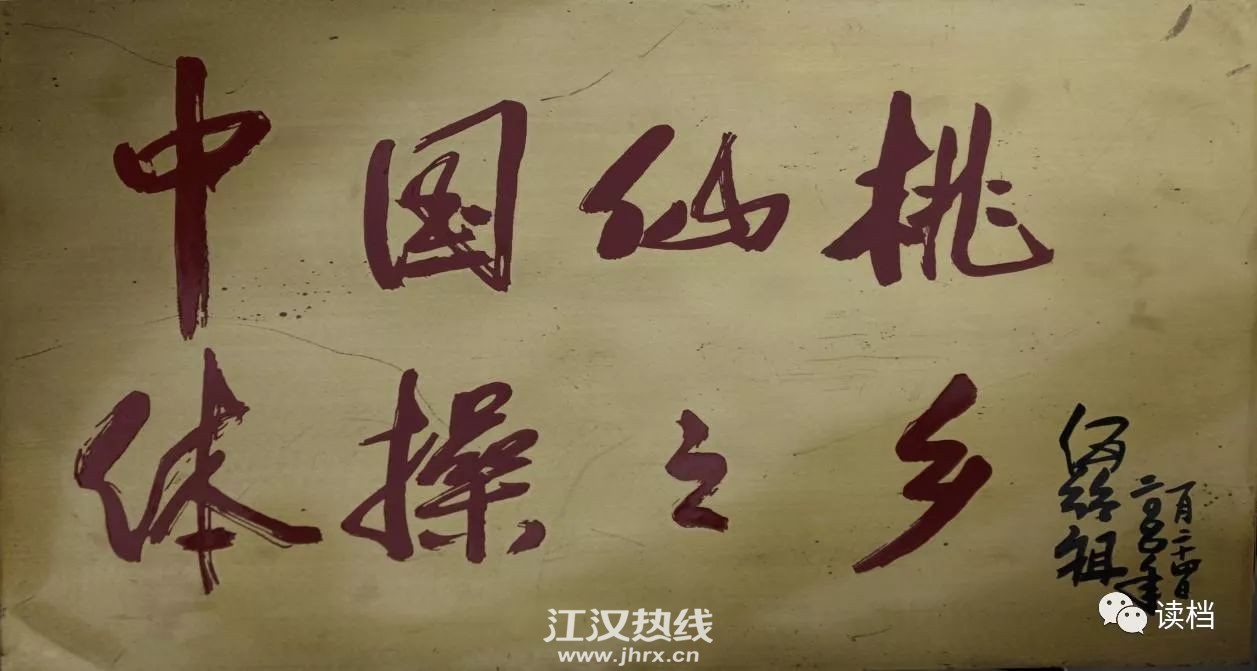 中国仙桃
体操之乡
伍绍祖
二〇〇〇年
一月二十四日
江汉热线
www.jhrx.cn
读档